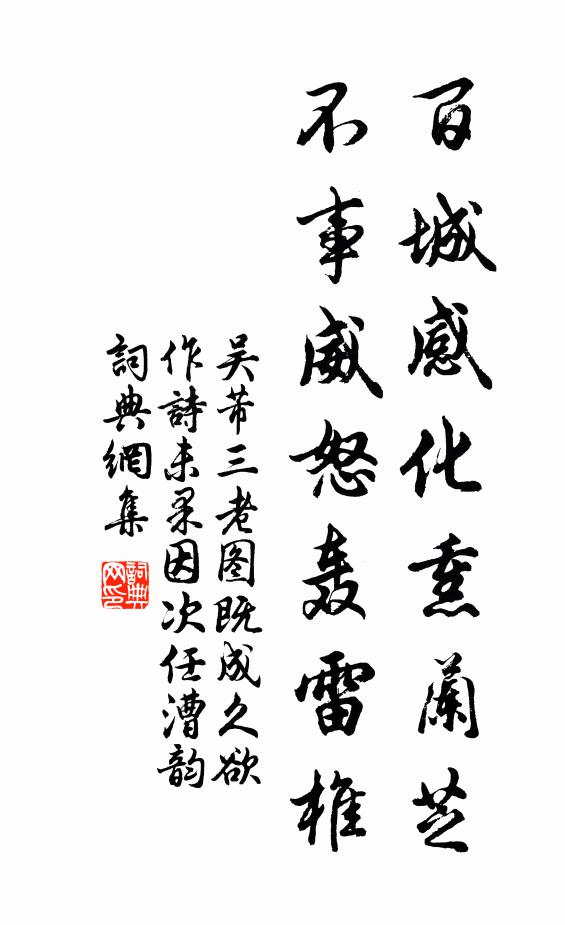 百城感化熏蘭芝
不事威怒轰雷椎
吴芾三老图既成久欲
作詩未果因次任漕韵
詞典網集
詞典
网印